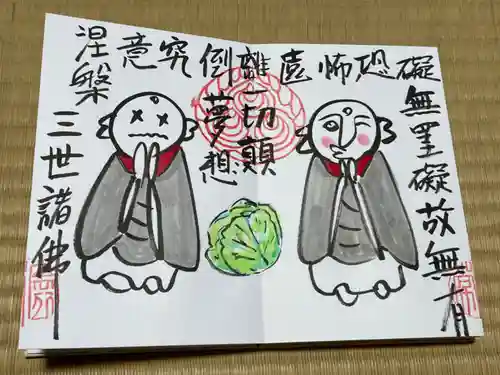 礙
無罣礙故無有
恐怖遠
離一切頭
倒夢想
究意
涅槃
三世諸佛